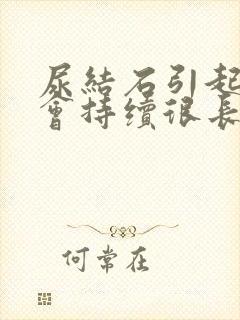 尿結石引起
會持續很長
何常在